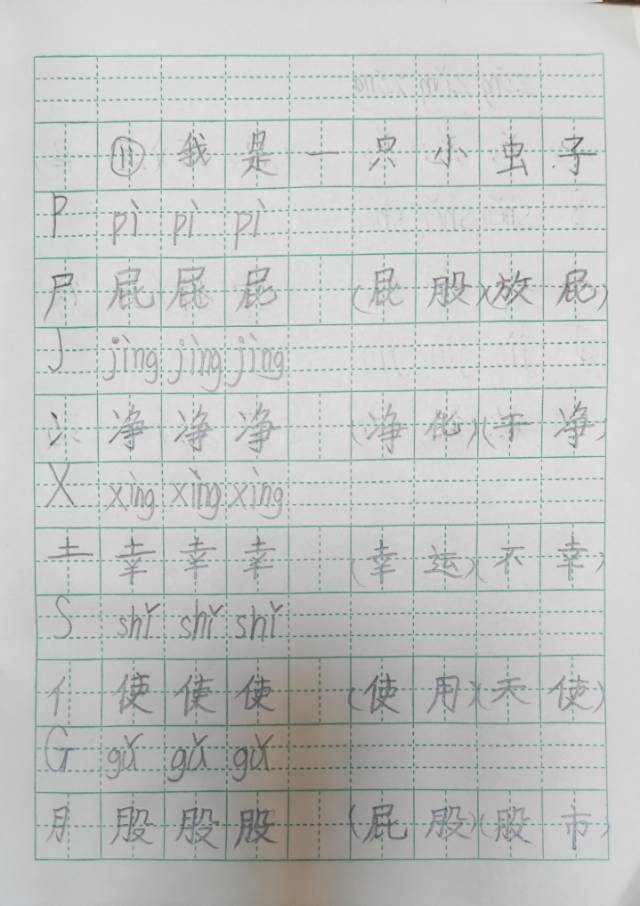 ⑪我是一只小虫子
P pì pì pì
尸 屁 屁 屁 (屁股)(放屁)
J jìng jìng jìng
冫 净 净 净 (净化)(干净)
X xìng xìng xìng
土 幸 幸 幸 (幸运)(不幸)
S shǐ shǐ shǐ
亻 使 使 使 (使用)(天使)
G gǔ gǔ gǔ
月 股 股 股 (屁股)(股市)